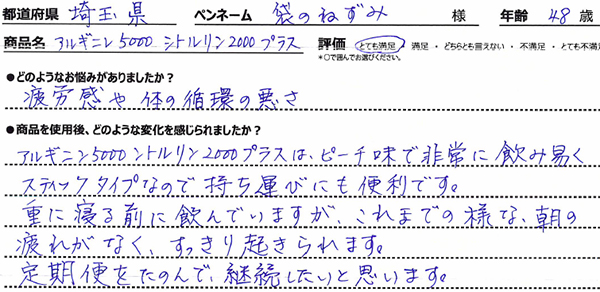 都道府県 埼玉県 ペンネーム 袋のねずみ 様 年齢 48 歳
商品名 アルギニン5000 シトルリン2000プラス 評価 とても満足 ・ 満足 ・ どちらとも言えない ・ 不満足 ・ とても不満
*○で囲んでお選びください。
●どのようなお悩みがありましたか?
疲労感や 体の循環の悪さ
●商品を使用後、どのような変化を感じられましたか?
アルギニン5000シトルリン2000プラスは、ピーチ味で非常に飲み易く
スティックタイプなので持ち運びにも便利です。
重に寝る前に飲んでいますが、これまでの様な、朝の
疲れがなく、すっきり起きられます。
定期便をたのんで、継続したいと思います。